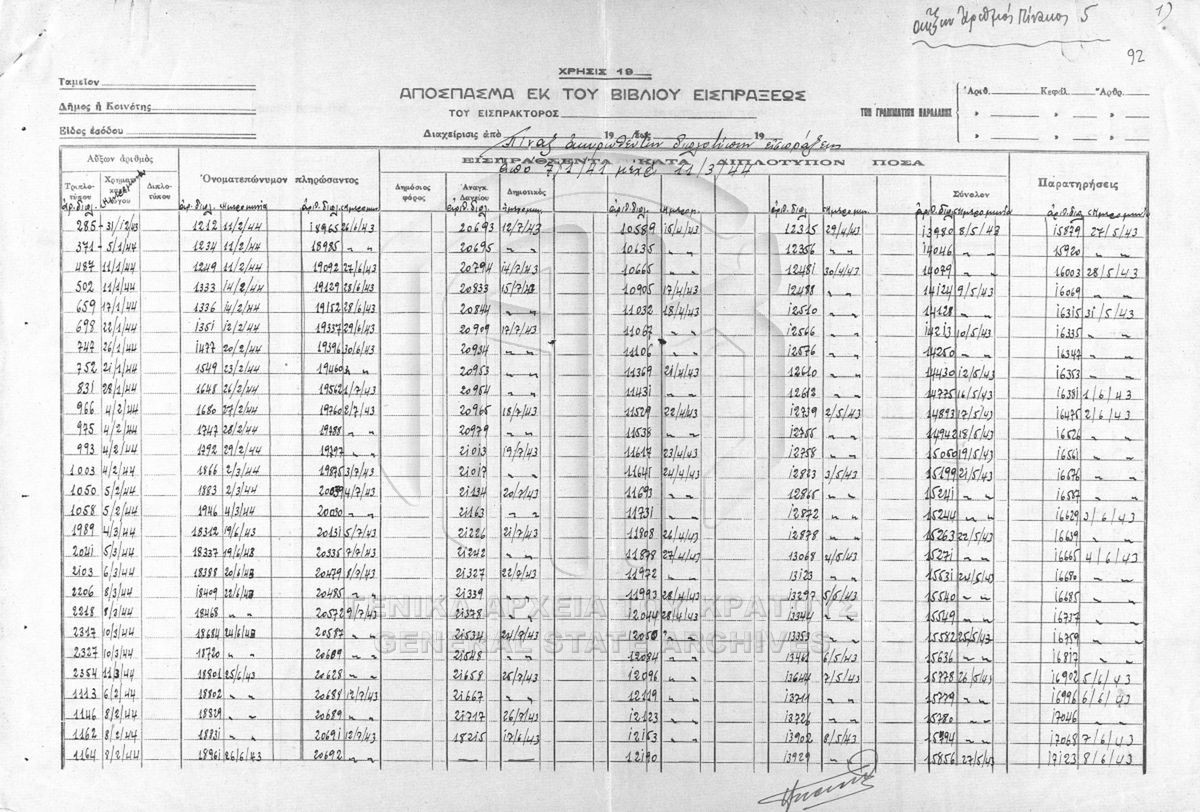 αὔξων Ἀριθμός Πίνακος 5 1)
92
ΧΡΗΣΙΣ 19
Ταμεῖον
Δῆμος ἢ Κοινότης
Εἶδος ἐσόδου
ΑΠΟΣΠΑΣΜΑ ΕΚ ΤΟΥ ΒΙΒΛΙΟΥ ΕΙΣΠΡΑΞΕΩΣ
ΤΟΥ ΕΙΣΠΡΑΚΤΟΡΟΣ
Διαχείρισις ἀπὸ 19 ἕως 19
Πίναξ ἀκυρωθέντων διπλοτύπων εἰσπράξεως
ΤΩΝ ΓΡΑΜΜΑΤΙΩΝ ΠΑΡΑΛΑΒΗΣ
Ἀριθ. Κεφάλ. Ἄρθρ.
Αὔξων ἀριθμὸς Ὀνοματεπώνυμον πληρώσαντος ΕΙΣΠΡΑΧΘΕΝΤΑ ΚΑΤΑ ΔΙΠΛΟΤΥΠΟΝ ΠΟΣΑ Παρατηρήσεις
ἀπὸ 7/1/41 μέχρι 11/3/44
Τριπλοτύπου Διπλοτύπου Δημόσιος φόρος Ἀναγκ. Δανείου Δημοτικὸς Σύνολον
285 31/12/43 1212 11/2/44 18965 26/6/43 20693 12/7/43 10589 15/4/43 12315 29/4/43 13980 8/5/43 15879 27/5/43
371 5/1/44 1234 11/2/44 18985 〃 〃 20695 〃 〃 10635 〃 〃 12356 〃 〃 14046 〃 〃 15920 〃 〃
487 11/1/44 1249 11/2/44 19092 27/6/43 20794 14/7/43 10665 〃 〃 12481 30/4/43 14079 〃 〃 16003 28/5/43
502 11/1/44 1333 14/2/44 19129 28/6/43 20833 15/7/43 10905 17/4/43 12488 〃 〃 14124 9/5/43 16069 〃 〃
659 17/1/44 1336 14/2/44 19152 28/6/43 20844 〃 〃 11032 18/4/43 12510 〃 〃 14128 〃 〃 16315 31/5/43
698 22/1/44 1351 12/2/44 19337 29/6/43 20909 17/7/43 11067 〃 〃 12566 〃 〃 14213 10/5/43 16335 〃 〃
747 26/1/44 1477 20/2/44 19396 30/6/43 20934 〃 〃 11106 〃 〃 12576 〃 〃 14250 〃 〃 16347 〃 〃
752 21/1/44 1549 23/2/44 19460 20953 〃 〃 11369 21/4/43 12610 〃 〃 14430 12/5/43 16353 〃 〃
831 28/1/44 1648 26/2/44 19562 1/7/43 20954 〃 〃 11431 〃 〃 12612 〃 〃 14775 16/5/43 16381 1/6/43
966 4/2/44 1680 27/2/44 19760 2/7/43 20965 18/7/43 11529 22/4/43 12739 2/5/43 14893 17/5/43 16475 2/6/43
975 4/2/44 1747 28/2/44 19788 〃 〃 20979 〃 〃 11538 〃 〃 12755 〃 〃 14942 18/5/43 16526 〃 〃
993 4/2/44 1792 29/2/44 19797 〃 〃 21013 19/7/43 11617 23/4/43 12758 〃 〃 15050 19/5/43 16561 〃 〃
1003 4/2/44 1866 2/3/44 19875 3/7/43 21017 〃 〃 11641 24/4/43 12823 3/5/43 15199 21/5/43 16576 〃 〃
1050 5/2/44 1883 2/3/44 4/7/43 21134 20/7/43 11693 〃 〃 12865 〃 〃 15241 〃 〃 16587 〃 〃
1058 5/2/44 1946 4/3/44 20030 〃 〃 21163 〃 〃 11731 〃 〃 12872 〃 〃 15244 〃 〃 16629 3/6/43
1989 4/3/44 18312 19/6/43 20131 5/7/43 21226 21/7/43 11808 26/4/43 12878 〃 〃 15263 22/5/43 16639 〃 〃
2041 5/3/44 18337 19/6/43 20335 7/7/43 21242 〃 〃 11878 27/4/43 13068 4/5/43 15271 〃 〃 16665 4/6/43
2103 6/3/44 18388 20/6/43 20479 8/7/43 21327 22/7/43 11972 〃 〃 13123 〃 〃 15531 24/5/43 16680 〃 〃
2206 8/3/44 18409 22/6/43 20485 〃 〃 21339 〃 〃 11993 28/4/43 13297 5/5/43 15540 〃 〃 16685 〃 〃
2218 8/3/44 18468 〃 〃 20572 9/7/43 21378 〃 〃 12044 28/4/43 13344 〃 〃 15549 〃 〃 16737 〃 〃
2317 10/3/44 18684 24/6/43 20587 〃 〃 21534 24/7/43 12050 〃 〃 13353 〃 〃 15582 25/5/43 16759 〃 〃
2327 10/3/44 18720 〃 〃 20609 〃 〃 21548 〃 〃 12084 〃 〃 13461 6/5/43 15636 〃 〃 16817 〃 〃
2354 11/3/44 18801 25/6/43 20628 〃 〃 21658 25/7/43 12096 〃 〃 13644 7/5/43 15778 26/5/43 16902 5/6/43
1113 6/2/44 18802 〃 〃 20688 12/7/43 21667 〃 〃 12119 〃 〃 13711 〃 〃 15779 〃 〃 16996 6/6/43
1146 8/2/44 18829 〃 〃 20689 〃 〃 21717 26/7/43 12123 〃 〃 13726 〃 〃 15780 〃 〃 17046 〃 〃
1162 8/2/44 18831 〃 〃 20691 12/7/43 18215 17/6/43 12153 〃 〃 13902 8/5/43 15794 〃 〃 17068 7/6/43
1164 8/2/44 18961 26/6/43 20692 〃 〃 — — 12190 〃 〃 13929 〃 〃 15856 27/5/43 17123 8/6/43
ΓΕΝΙΚΑ ΑΡΧΕΙΑ ΤΟΥ ΚΡΑΤΟΥΣ
GENERAL STATE ARCHIVES